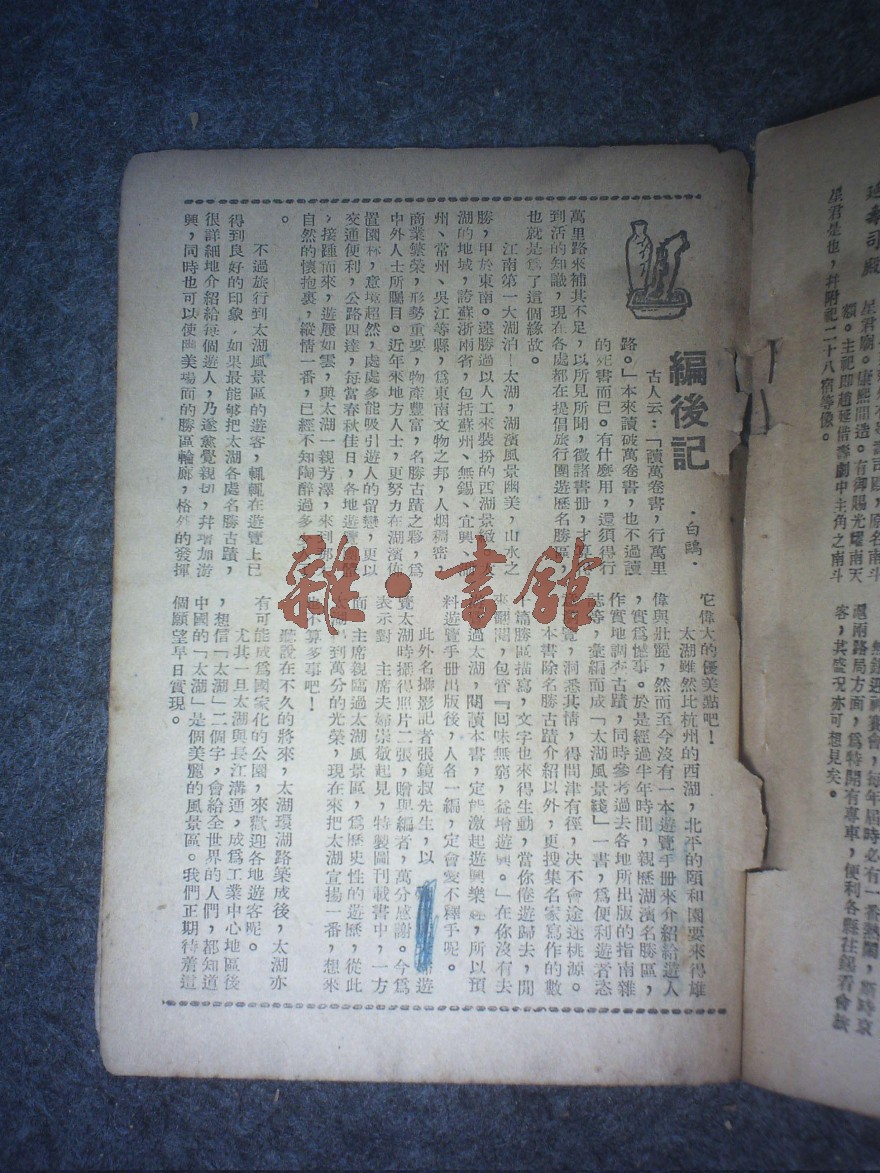 星君廟。康熙間造。有御賜光耀南天
額。主祀即趙延借壽劇中主角之南斗
星君是也，幷附祀二十八宿等像。
還兩路局方面，爲特開有專車，便利各縣往錫看會旅
客，其盛况亦可想見矣。
編後記
·白鷗·
古人云：「讀萬卷書，行萬里
路。」本來讀破萬卷書，也不過讀
的死書而已。有什麼用，還須得行
萬里路來補其不足，以所見所聞，徵諸書冊，才
到活的知識，現在各處都在提倡旅行團遊歷名勝區，
也就是爲了這個緣故。
江南第一大湖泊—太湖，湖濱風景幽美，山水之
勝，甲於東南。遠勝過以人工來裝扮的西湖景緻，太
湖的地域，誇蘇浙兩省，包括蘇州、無錫、宜興、湖
州、常州、吳江等縣，爲東南文物之邦，人烟稠密，
商業繁榮，形勢重要，物產豐富，名勝古蹟之夥，爲
中外人士所矚目。近年來地方人士，更努力在湖濱佈
置園林，意境超然，處處多能吸引遊人的留戀，更以
交通便利，公路四達，每當春秋佳日，各地遊覽
，接踵而來，遊屐如雲，與太湖一親芳澤，來到
自然的懷抱裏，縱情一番，已經不知陶醉過多
。
不過旅行到太湖風景區的遊客，輒輒在遊覽上已
得到良好的印象，如果最能够把太湖各處名勝古蹟，
很詳細地介紹給每個遊人，乃遂愈覺親切，幷增加游
興，同時也可以使幽美場面的勝區輪廓，格外的發揮
它偉大的優美點吧！
太湖雖然比杭州的西湖，北平的頤和園要來得雄
偉與壯麗，然而至今沒有一本遊覽手册來介紹給遊人
，實爲憾事。於是經過半年時間，親歷湖濱名勝區，
作實地調查古蹟，同時參考過去各地所出版的指南雜
誌等，彙編而成「太湖風景綫」一書，爲便利遊者恣
覽，洞悉其情，得問津有徑，决不會途迷桃源。
本書除名勝古蹟介紹以外，更搜集名家寫作的數
篇勝區描寫，文字也來得生動，當你倦遊歸去，閒
來翻閱，包管『回味無窮，益增遊興。』在你沒有去
過太湖，閱讀本書，定能激起遊興樂趣，所以預
料遊覽手册出版後，人各一編，定會愛不釋手呢。
此外名攝影記者張鏡叔先生，以
遊
覽太湖時攝得照片二張，贈與編者，萬分感謝。今爲
表示對 主席夫婦崇敬起見，特製圖刊載書中，一方
而主席親臨過太湖風景區，爲歷史性的遊歷，從此
太湖得到萬分的光榮，現在來把太湖宣揚一番，想來
不算多事吧！
聽說在不久的將來，太湖環湖路築成後，太湖亦
有可能成爲國家化的公園，來歡迎各地遊客呢。
尤其一旦太湖與長江溝通，成爲工業中心地區後
，想信「太湖」二個字，會給全世界的人們，都知道
中國的「太湖」是個美麗的風景區。我們正期待着這
個願望早日實現。
雜·書館